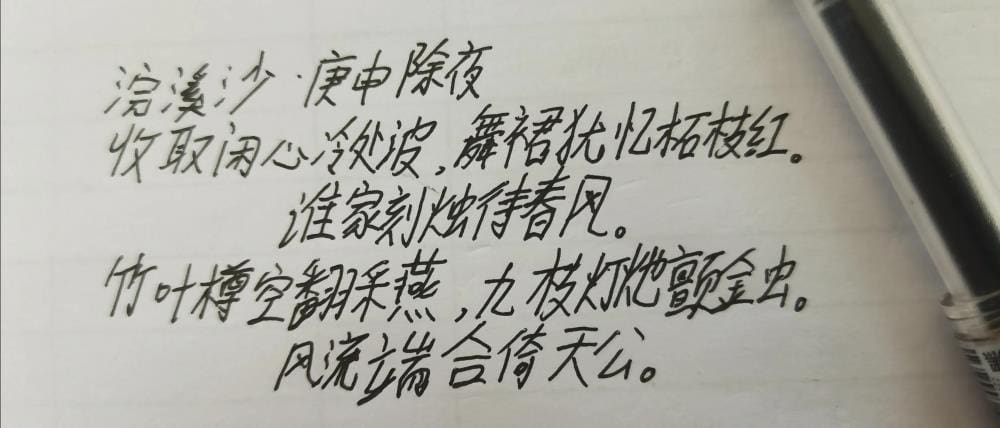 浣溪沙·庚申除夜
收取闲心冷处波,舞裙犹忆柘枝红。
谁家刻烛待春风。
竹叶樽空翻采燕,九枝灯灺颤金虫。
风流端合倚天公。